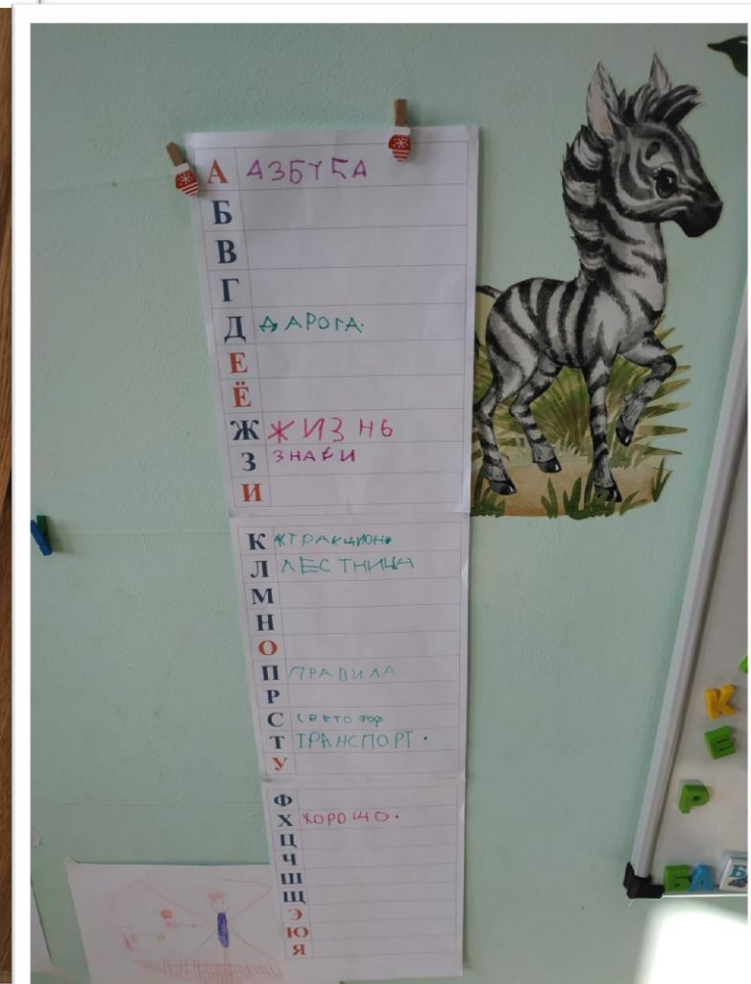 А АЗБУКА
Б
В
Г
Д ДАРОГА.
Е
Ё
Ж ЖИЗНЬ
З ЗНАКИ
И
К
Л ЛЕСТНИЦА
М
Н
О
П ПРАВИЛА
Р
С светофор
Т ТРАНСПОРТ.
У
Ф
Х ХОРОШО.
Ц
Ч
Ш
Щ
Э
Ю
Я
К
Е
Р
БА Б